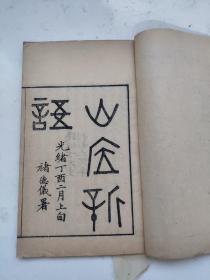 山居新
語
光緒丁酉二月上旬
褚德儀署